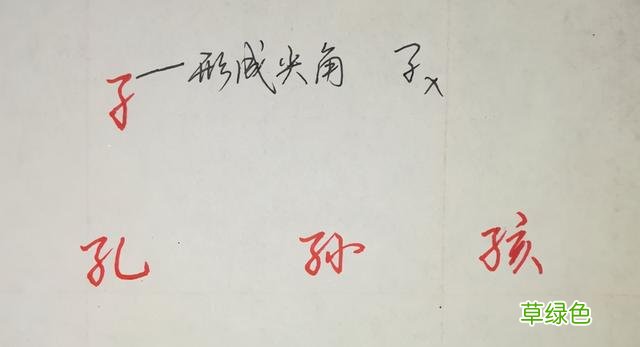 子—形成尖角 子x
孔 孙 孩
草绿色